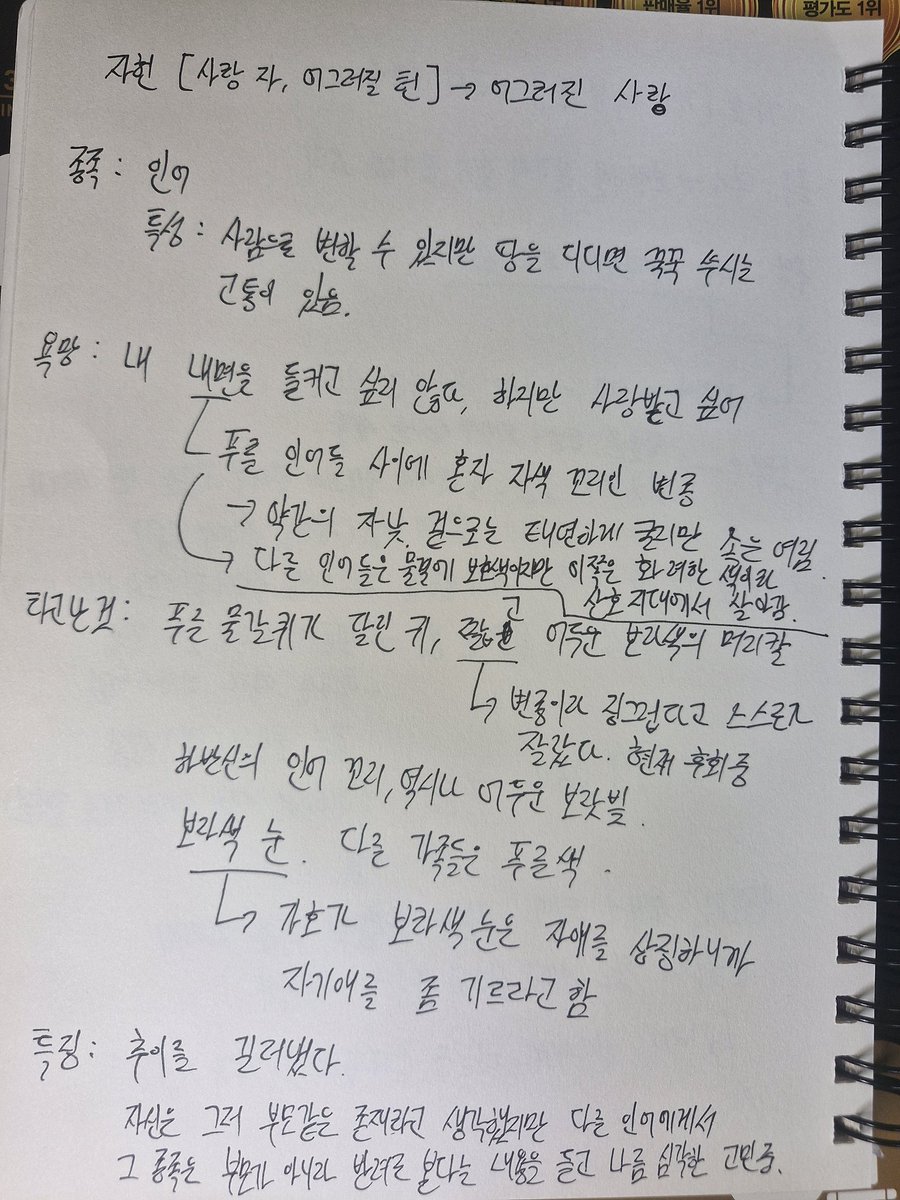 판매율 1위
평가도 1위
자헌 [사랑 자, 어그러질 헌] → 어그러진 사랑
종족 : 인어
특성 : 사람으로 변할 수 있지만 땅을 디디면 꾹꾹 쑤시는
고통이 있음.
욕망 : 내 내면을 들키고 싶지 않다, 하지만 사랑받고 싶어
푸른 인어들 사이에 혼자 자색 꼬리인 변종
→ 약간의 자낮. 겉으로는 태연하게 굴지만 속는 여림
→ 다른 인어들은 물결에 보호색이지만 이쪽은 화려한 색이라
산호지대에서 살아감.
타고난 것 : 푸른 물갈퀴가 달린 귀, 짧고 어두운 보라색의 머리칼
→ 변종이라 징그럽다고 스스로
잘랐다. 현재 후회중
하반신의 인어 꼬리, 역시나 어두운 보랏빛.
보라색 눈. 다른 가족들은 푸른색.
→ 가호가 보라색 눈은 자애를 상징하니까
자기애를 좀 기르라고 함
특징 : 추이를 길러냈다.
자신은 그저 부모같은 존재라고 생각했지만 다른 인어에게서
그 종족은 부모가 아니라 반려로 본다는 내용을 듣고 나름 심각한 고민중.